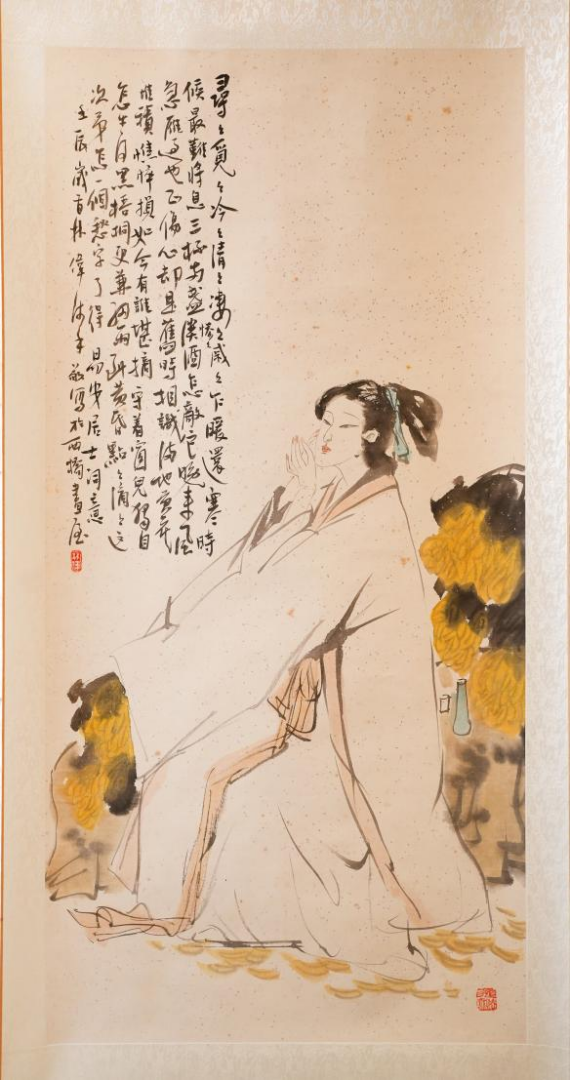 尋〻覓〻冷〻清〻凄〻慘〻戚〻乍暖還寒時
候最難將息三杯兩盞淡酒怎敵它晚來風
急雁過也正傷心却是舊時相識滿地黃花
堆積憔悴損如今有誰堪摘守着窗兒獨自
怎生得黑梧桐更兼細雨到黃昏點〻滴〻這
次第怎一個愁字了得易安居士詞意
壬辰歲首林偉寫於西畫屋